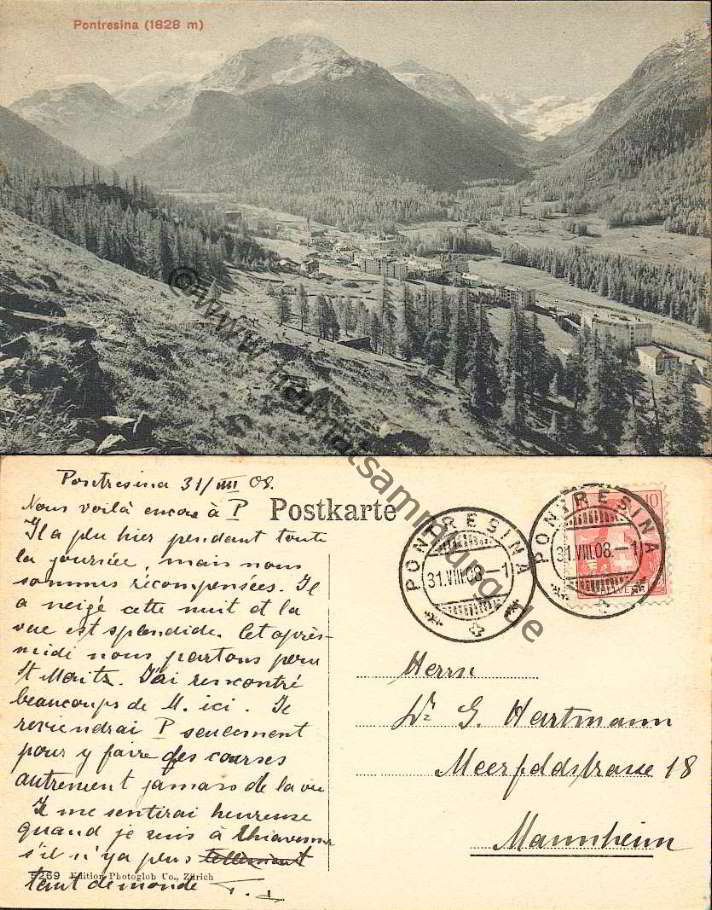 Pontresina (1828 m)
© www.heimatsammlung.de
Pontresina 31/VIII 08.
Nous voilà encore à P
Postkarte
Il a plu hier pendant toute
la journée, mais nous
sommes récompensées. Il
a neigé cette nuit et la
vue est splendide. Cet après-
midi nous partons pour
St Moritz. J'ai rencontré
beaucoup de M. ici. Je
reviendrai P seulement
pour y faire des courses
autrement jamais de la vie
Je me sentirai heureuse
quand je suis à Chiavenna
s'il n'y a plus tellement
tant de monde
5269 Edition Photoglob Co., Zürich
PONTRESINA
31.VIII.08.–1
PONTRESINA
31.VIII.08.–1
10
Herrn
Dr G. Hartmann
Meerfeldstrasse 18
Mannheim